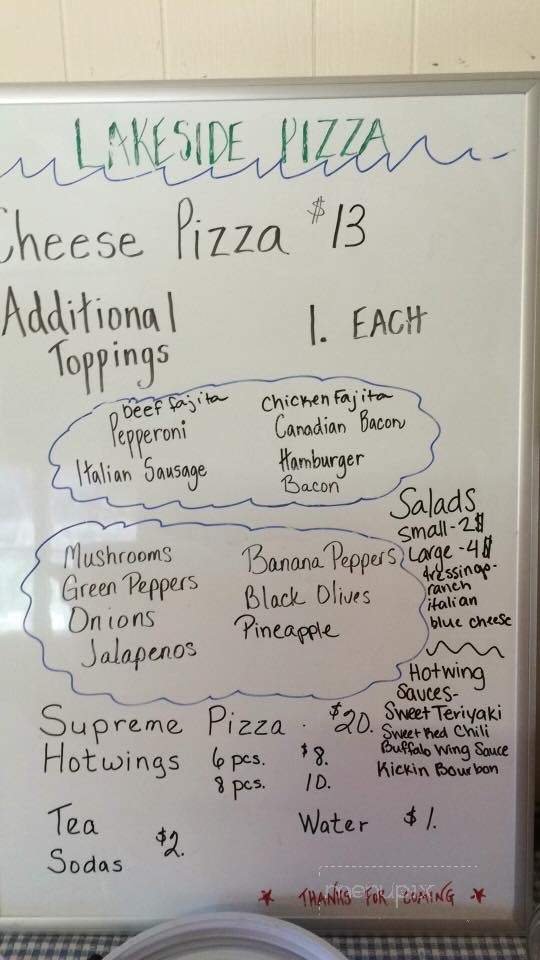 LAKESIDE PIZZA
Cheese Pizza $13
Additional Toppings
1. EACH
beef fajita
Pepperoni
Italian Sausage
Chicken Fajita
Canadian Bacon
Hamburger
Bacon
Mushrooms
Green Peppers
Onions
Jalapenos
Banana Peppers
Black Olives
Pineapple
Salads
Small - 2$
Large - 4$
dressings-
ranch
italian
blue cheese
Hotwing
Sauces-
Sweet Teriyaki
Sweet Red Chili
Buffalo Wing Sauce
Kickin Bourbon
Supreme Pizza . $20.
Hotwings 6 pcs. $8.
8 pcs. 10.
Tea
Sodas $2.
Water $1.
* THANKS FOR COMING *
menupix